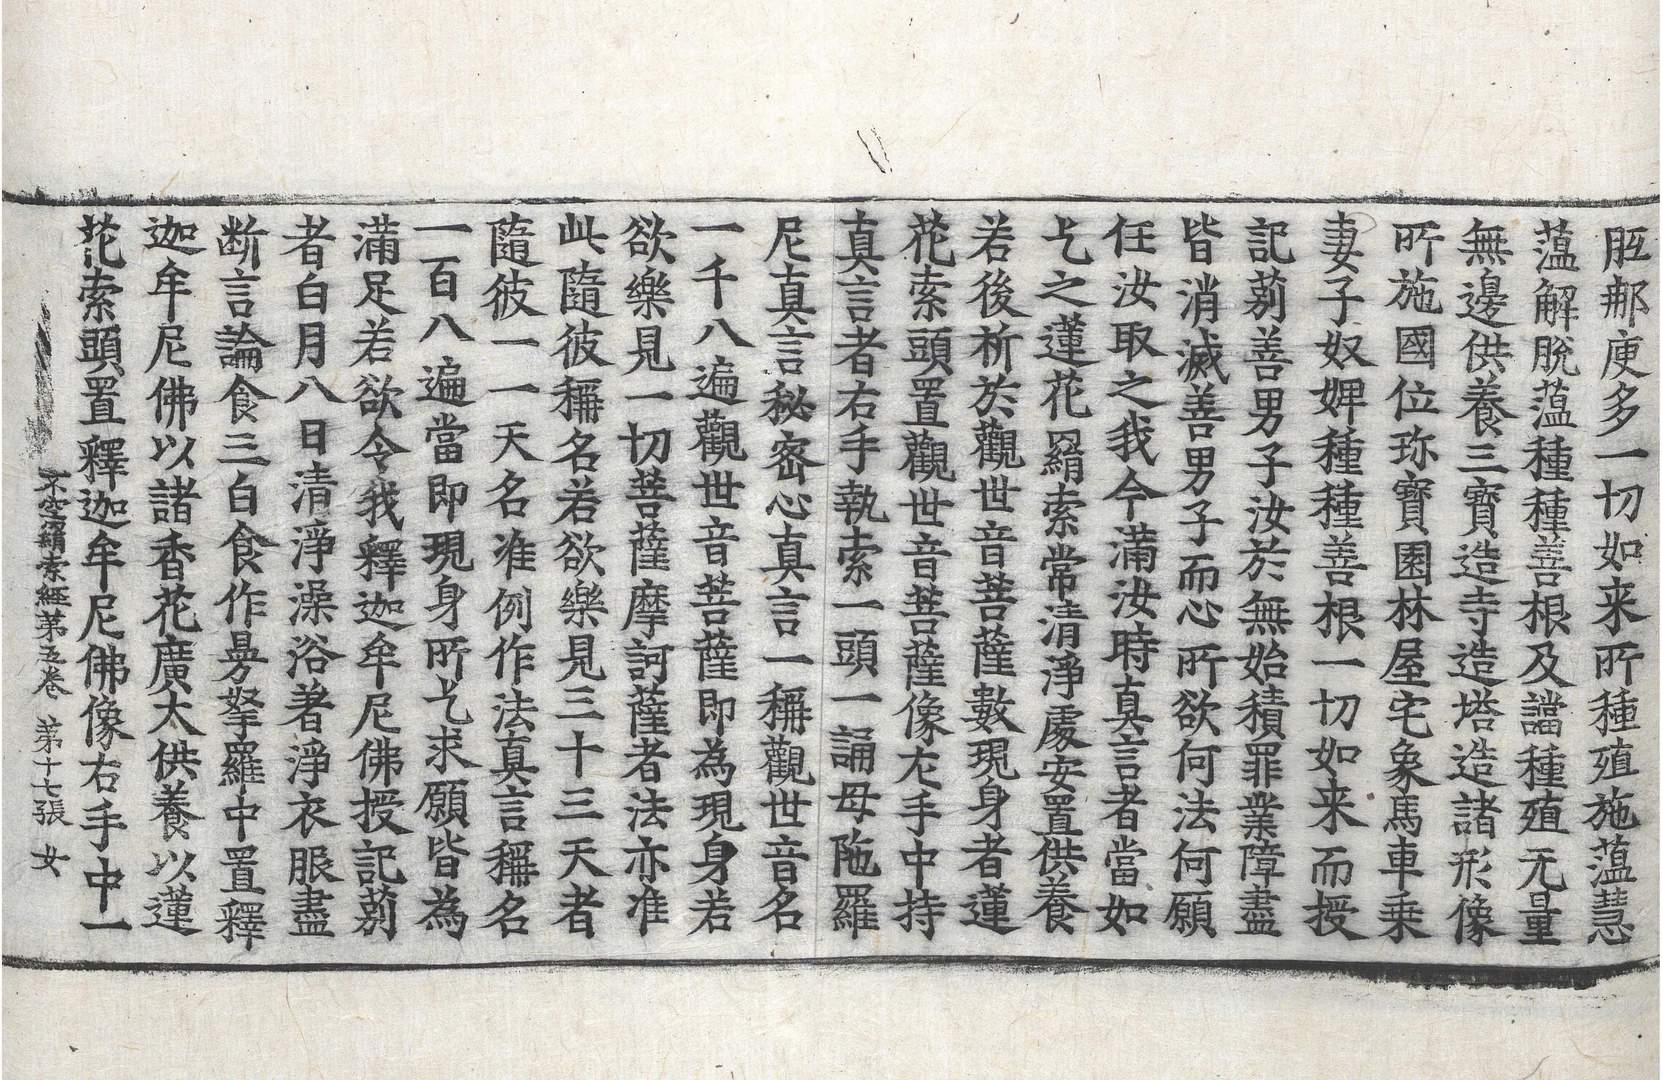 胝那庾多一切如来所種殖施蕰慧
蕰解脫蕰種種善根及讜種殖无量
無邊供養三寶造寺造塔造諸形像
所施國位珎寶園林屋宅象馬車乗
妻子奴婢種種善根一切如来而授
記莂善男子汝於無始積罪業障盡
皆消滅善男子而心所欲何法何願
任汝取之我今滿汝時真言者當如
上之蓮花羂索常清淨處安置供養
若後祈於觀世音菩薩數現身者蓮
花索頭置觀世音菩薩像左手中持
真言者右手執索一頭一誦母陁羅
尼真言秘密心真言一稱觀世音名
一千八遍觀世音菩薩即為現身若
欲樂見一切菩薩摩訶薩者法亦准
此隨彼稱名若欲樂見三十三天者
隨彼一一天名准例作法真言稱名
一百八遍當即現身所乞求願皆為
滿足若欲令我釋迦牟尼佛授記莂
者白月八日清淨澡浴著淨衣服盡
断言論食三白食作曼拏羅中置釋
迦牟尼佛以諸香花廣大供養以蓮
花索頭置釋迦牟尼佛像右手中一
不空羂索經第五卷 第十七張 女